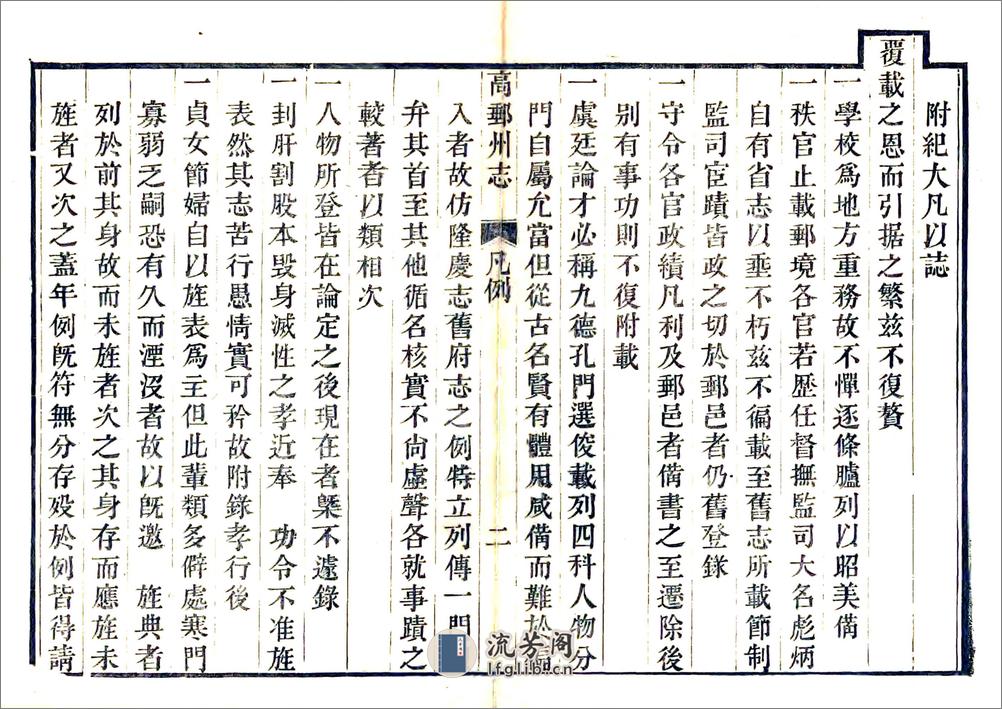 附紀大凡以誌
覆載之恩而引据之繁茲不復贅
一學校爲地方重務故不憚逐條臚列以昭美備
一秩官止載郵境各官若歷任督撫監司大名彪炳
自有省志以垂不朽茲不徧載至舊志所載節制
監司宦蹟皆政之切於郵邑者仍舊登錄
一守令各官政績凡利及郵邑者備書之至遷除後
别有事功則不復附載
一虞廷論才必稱九德孔門選俊載列四科人物分
門自屬允當但從古名賢有體用咸備而難於
高郵州志
凡例
二
入者故仿隆慶志舊府志之例特立列傳一門
弁其首至其他循名核實不尙虛聲各就事蹟之
較著者以類相次
一人物所登皆在論定之後現在者槩不遽錄
一刲肝割股本毁身滅性之孝近奉 功令不准旌
表然其志苦行愚情實可矜故附錄孝行後
一貞女節婦自以旌表爲主但此輩類多僻處寒門
寡弱乏嗣恐有久而湮沒者故以旣邀 旌典者
列於前其身故而未旌者次之其身存而應旌未
旌者又次之蓋年例旣符無分存歿於例皆得請
流芳阁
lfglib.cn